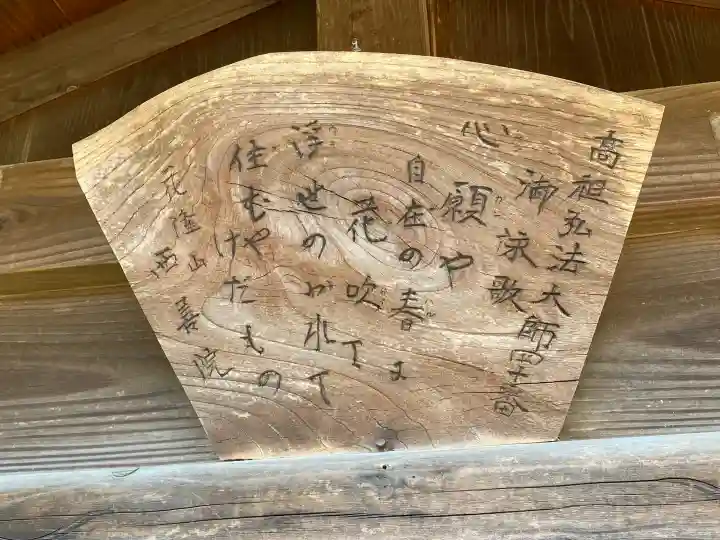 高祖弘法大師四十番
御詠歌
心願や
自在の春に
花吹て
浮世のがれて
住むやけだもの
隆山
西善院